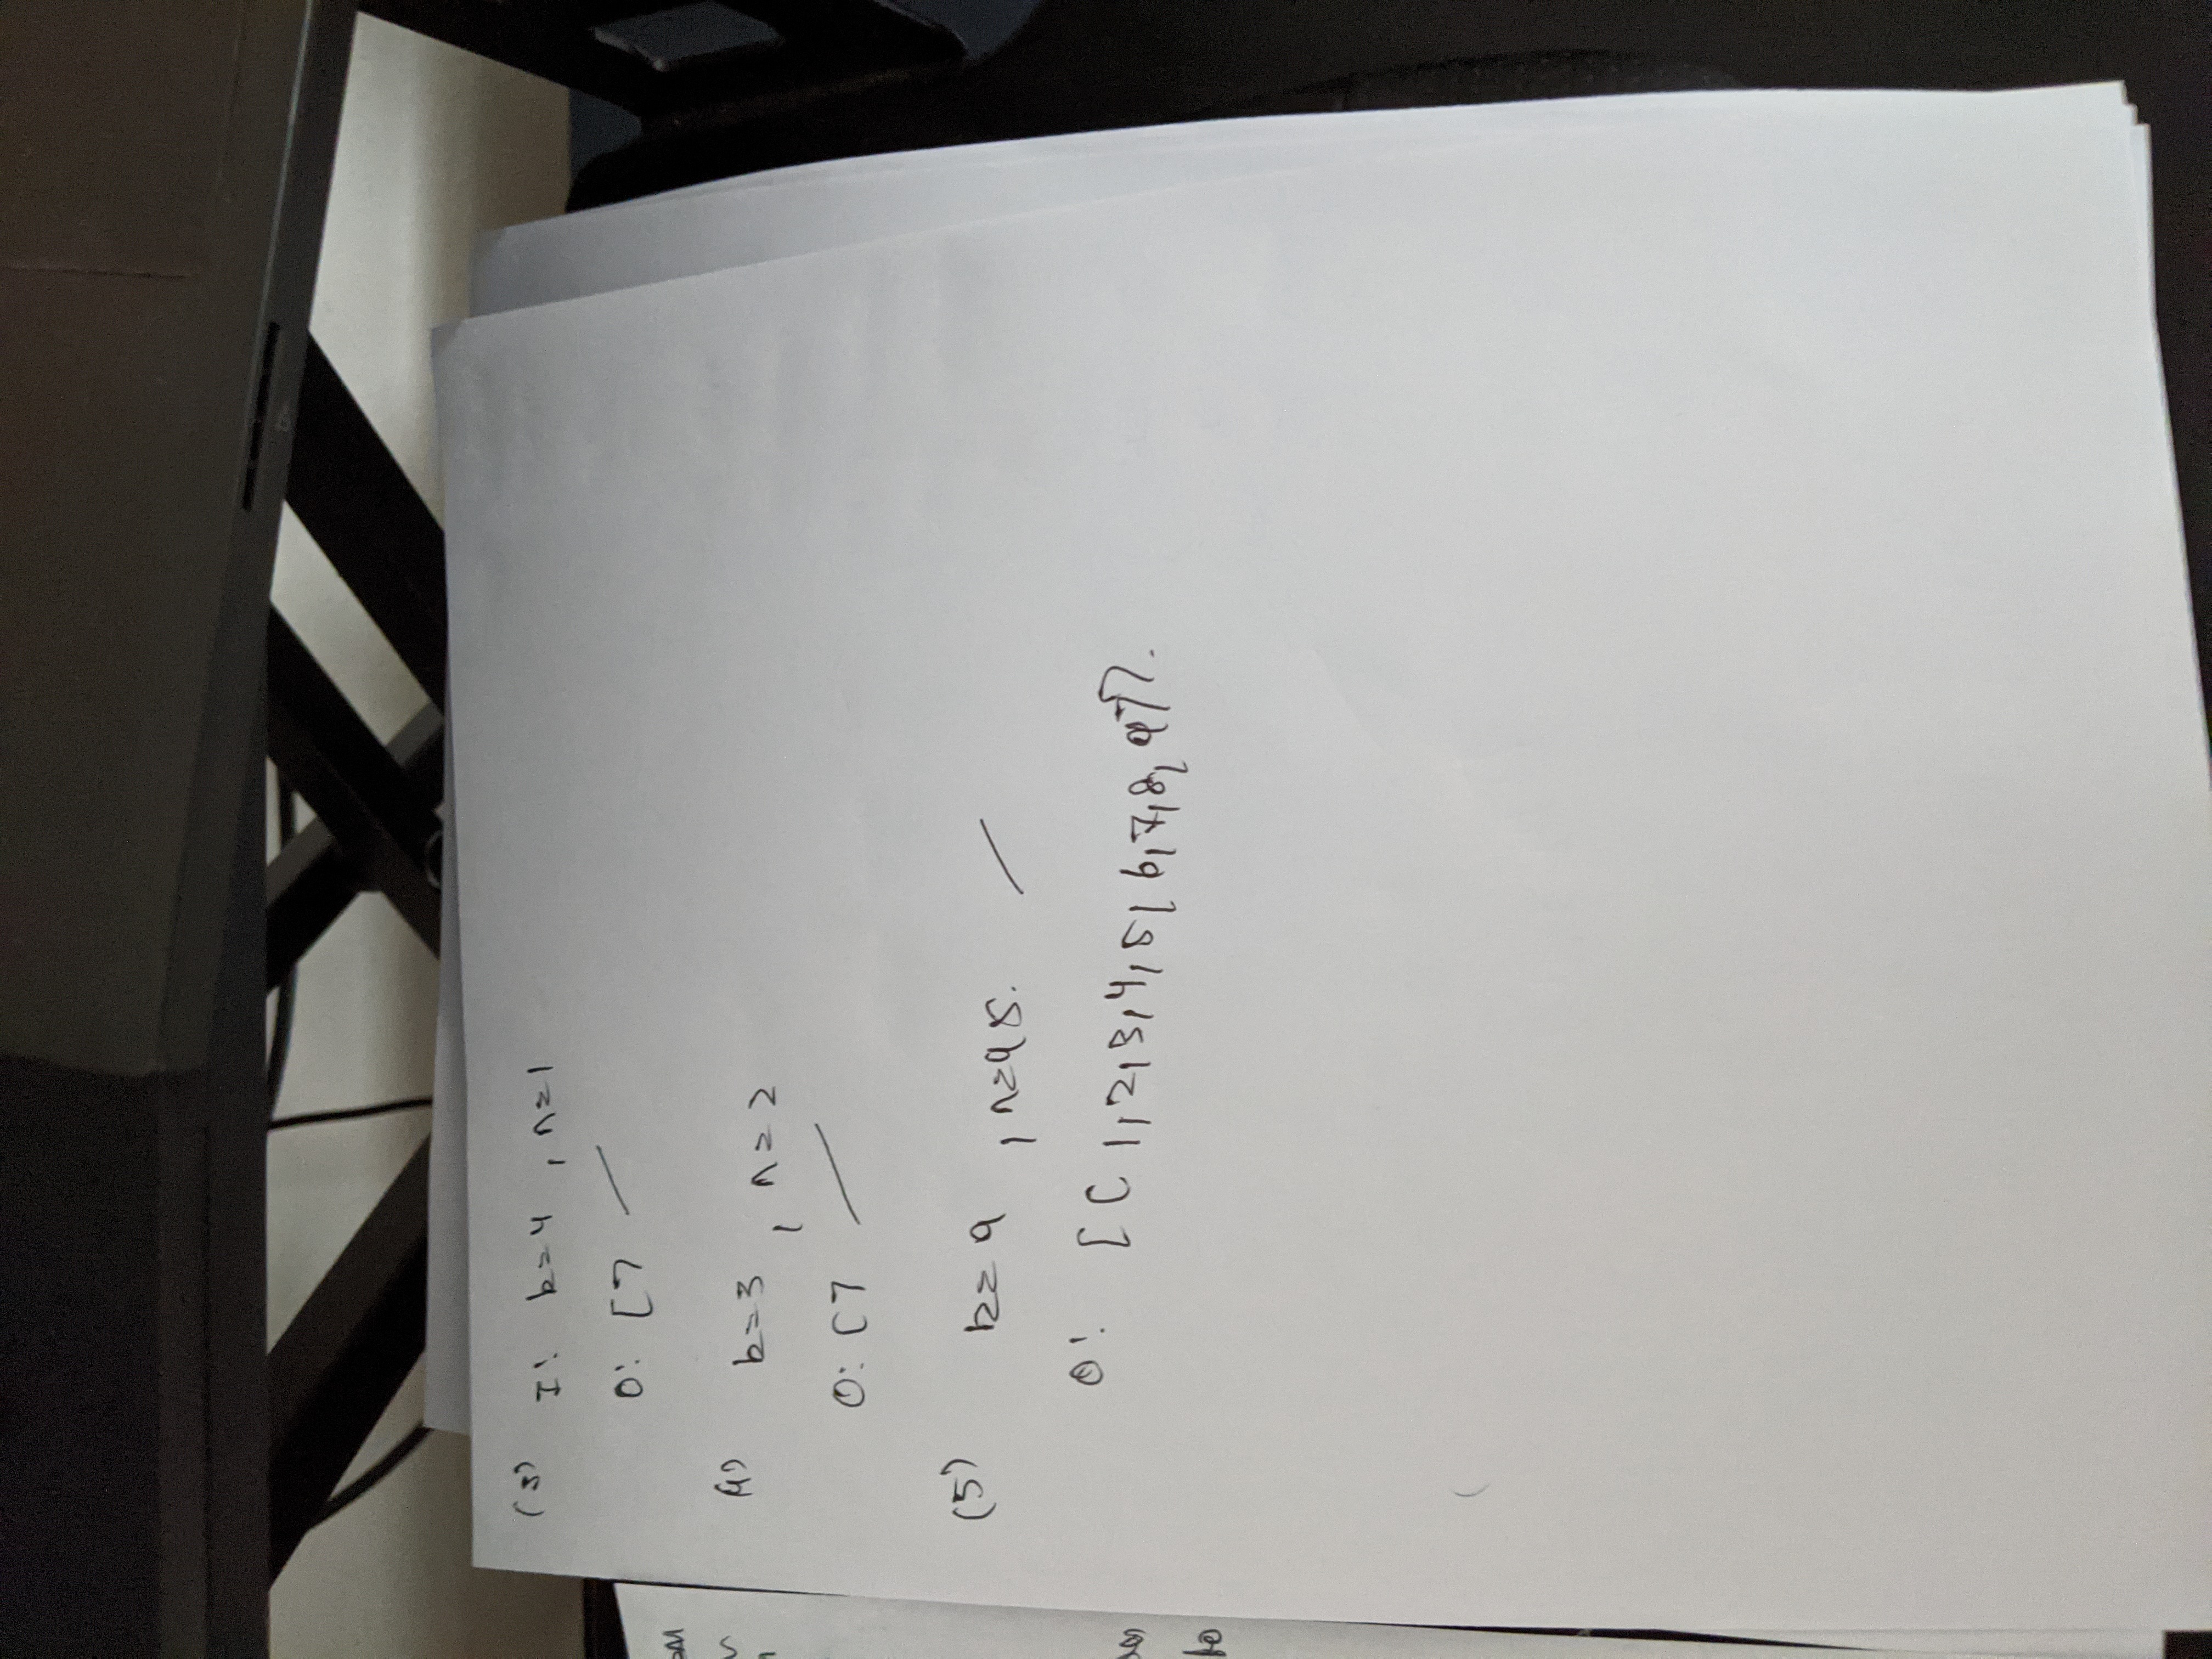 (3) I: k=4, n=1
O: []
(4) k=3, n=2
O: []
(5) k=9, n=45.
O: [[1,2,3,4,5,6,7,8,9]].
to